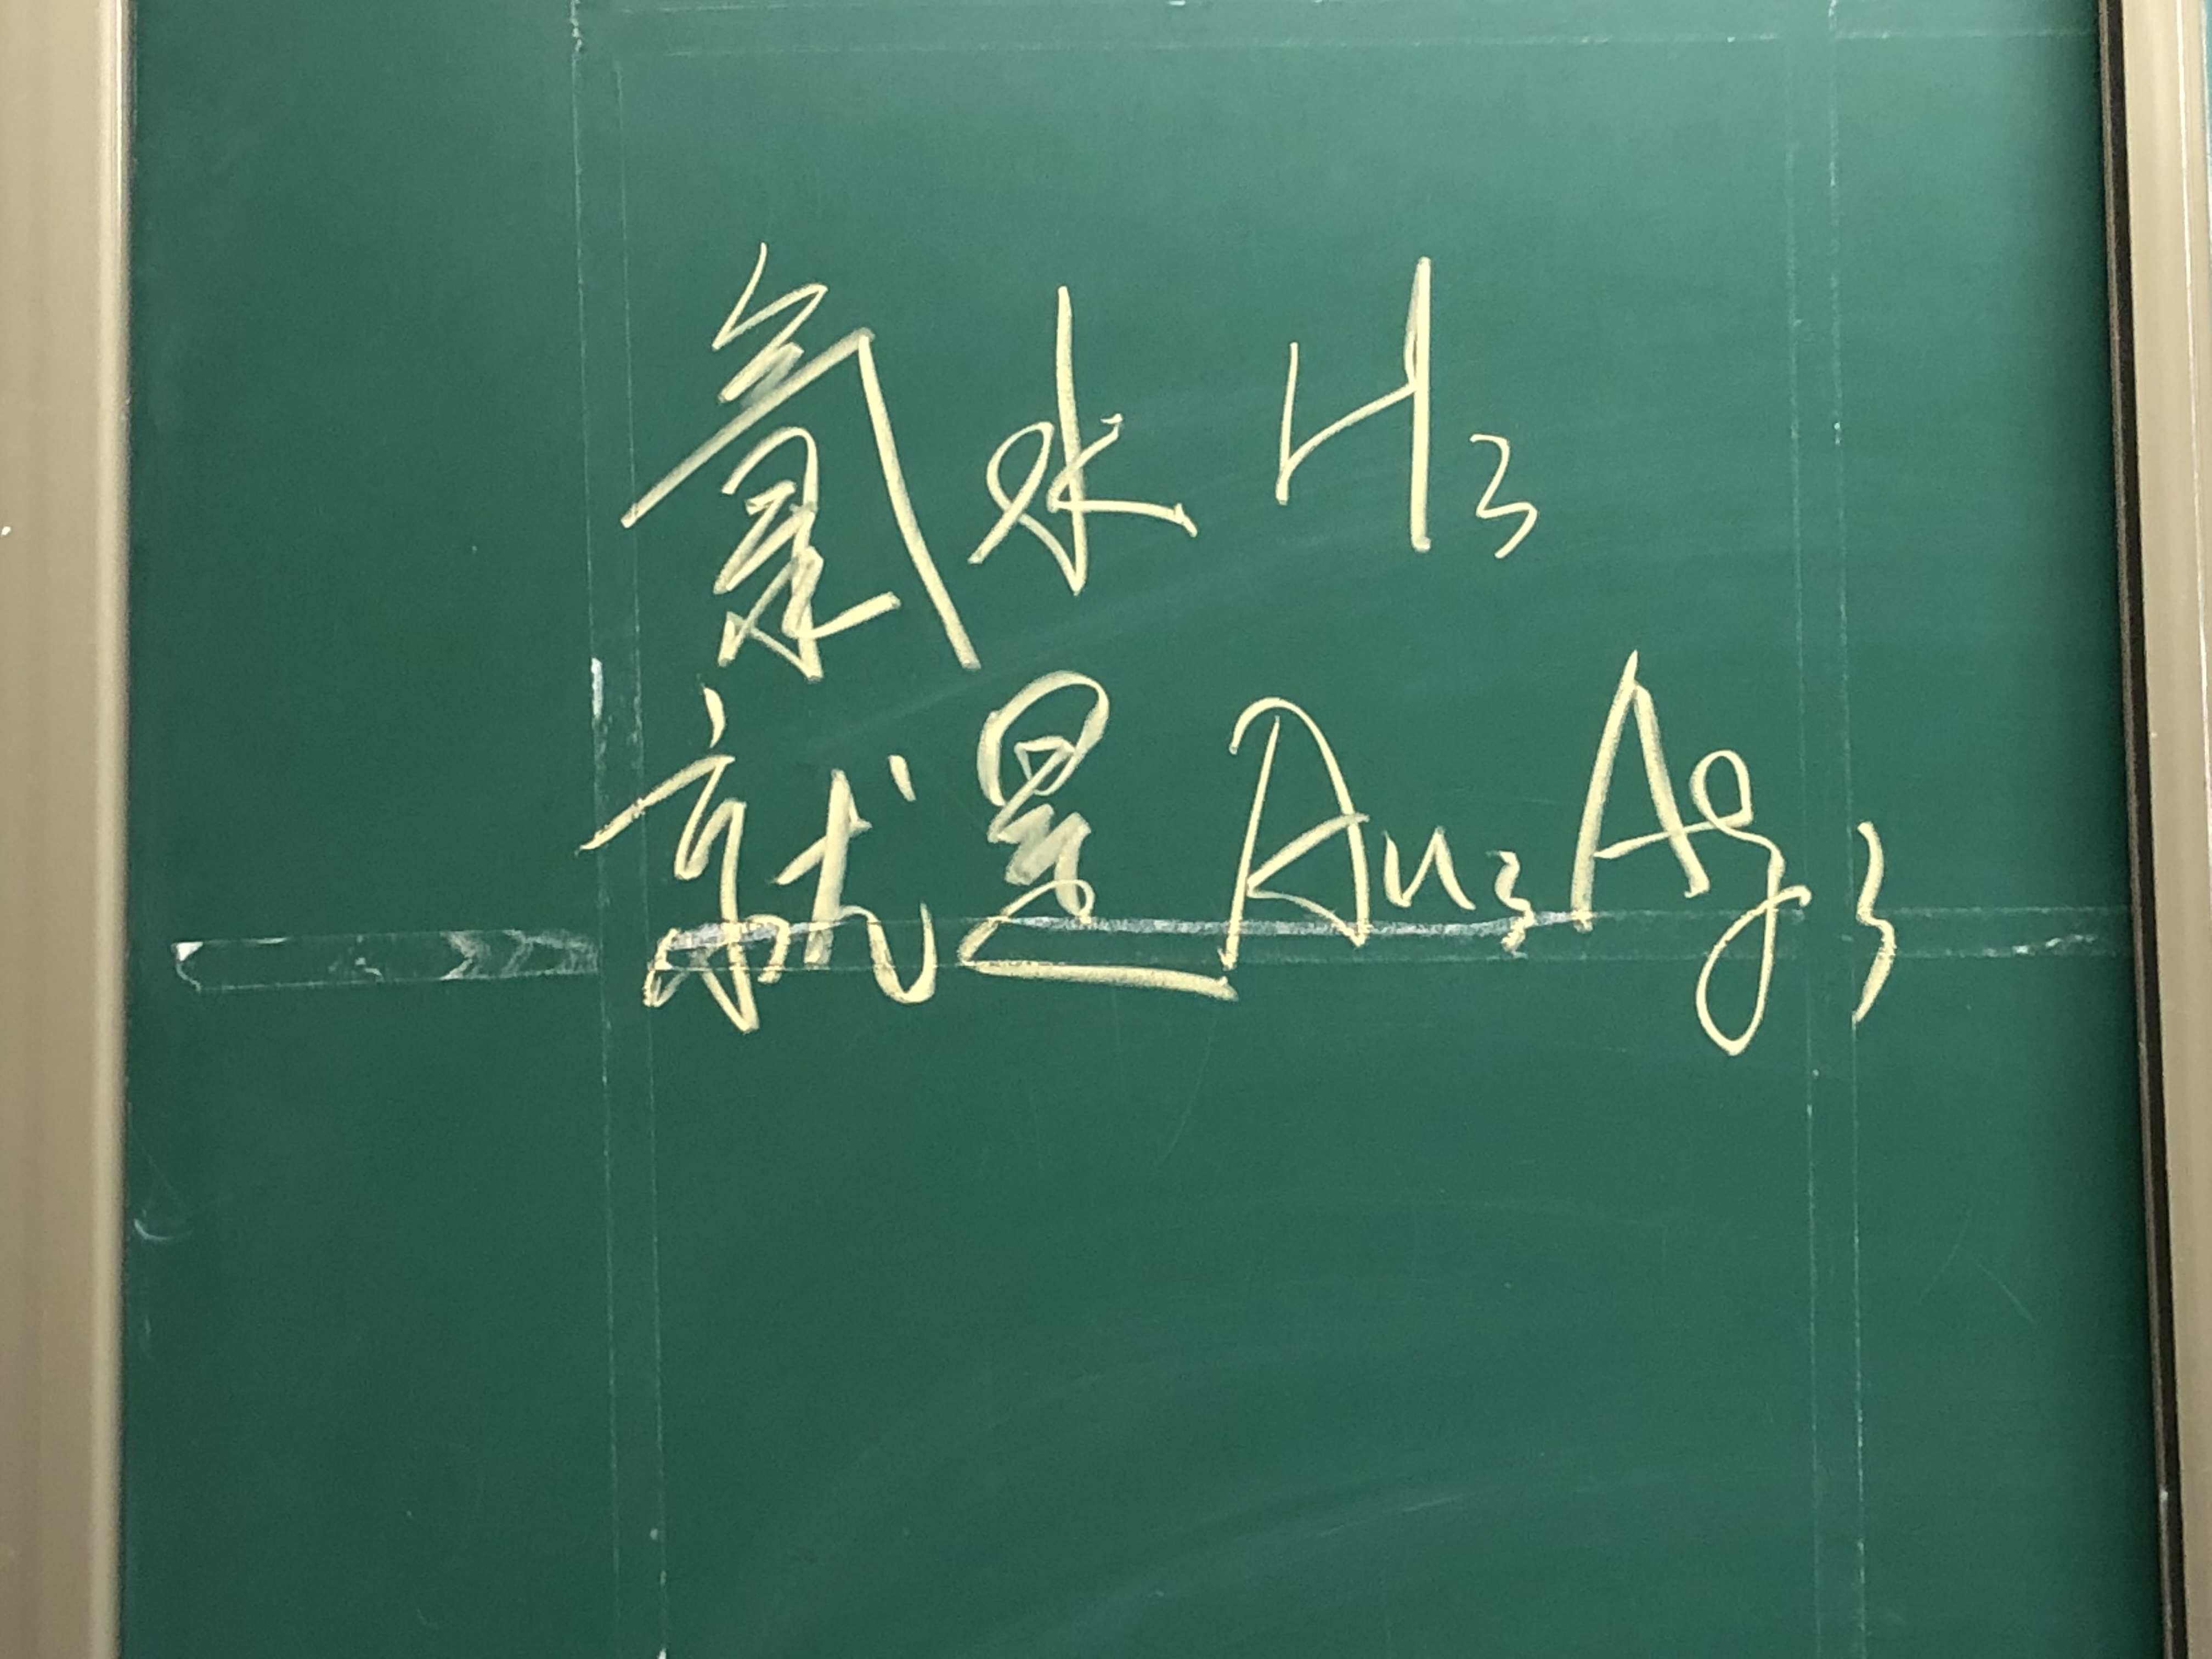 氯水 H₃
就是 Au₃Ag₃